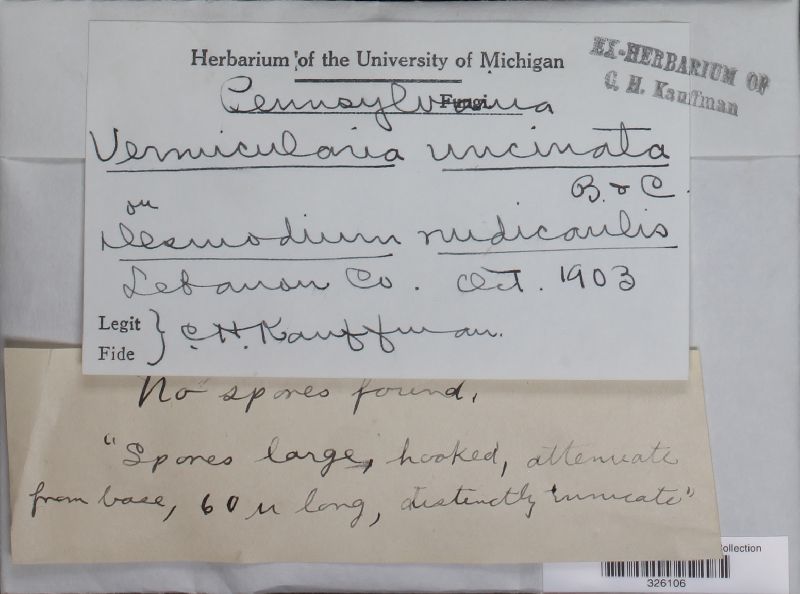 Herbarium of the University of Michigan
EX-HERBARIUM OF
C. H. Kauffman
Fungi
Pennsylvania
Vermicularia uncinata
B. & C.
on
Desmodium nudicaulis
Lebanon Co. Oct. 1903
Legit
Fide } C. H. Kauffman.
No spores found.
"Spores large, hooked, attenuate
from base, 60 u long, distinctly uncate"
ollection
326106